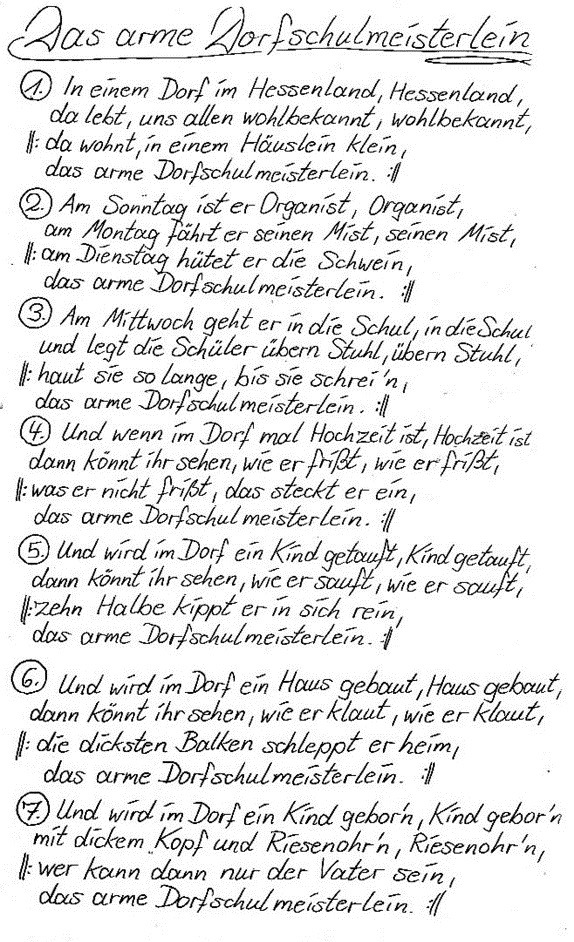 Das arme Dorfschulmeisterlein
1. In einem Dorf im Hessenland, Hessenland,
da lebt, uns allen wohlbekannt, wohlbekannt,
‖: da wohnt, in einem Häuslein klein,
das arme Dorfschulmeisterlein. :‖
2. Am Sonntag ist er Organist, Organist,
am Montag fährt er seinen Mist, seinen Mist,
‖: am Dienstag hütet er die Schwein,
das arme Dorfschulmeisterlein. :‖
3. Am Mittwoch geht er in die Schul, in die Schul
und legt die Schüler übern Stuhl, übern Stuhl,
‖: haut sie so lange, bis sie schrei'n,
das arme Dorfschulmeisterlein. :‖
4. Und wenn im Dorf mal Hochzeit ist, Hochzeit ist
dann könnt ihr sehen, wie er frißt, wie er frißt,
‖: was er nicht frißt, das steckt er ein,
das arme Dorfschulmeisterlein. :‖
5. Und wird im Dorf ein Kind getauft, Kind getauft,
dann könnt ihr sehen, wie er sauft, wie er sauft,
‖: zehn Halbe kippt er in sich rein,
das arme Dorfschulmeisterlein. :‖
6. Und wird im Dorf ein Haus gebaut, Haus gebaut,
dann könnt ihr sehen, wie er klaut, wie er klaut,
‖: die dicksten Balken schleppt er heim,
das arme Dorfschulmeisterlein. :‖
7. Und wird im Dorf ein Kind gebor'n, Kind gebor'n
mit dickem Kopf und Riesenohr'n, Riesenohr'n,
‖: wer kann dann nur der Vater sein,
das arme Dorfschulmeisterlein. :‖